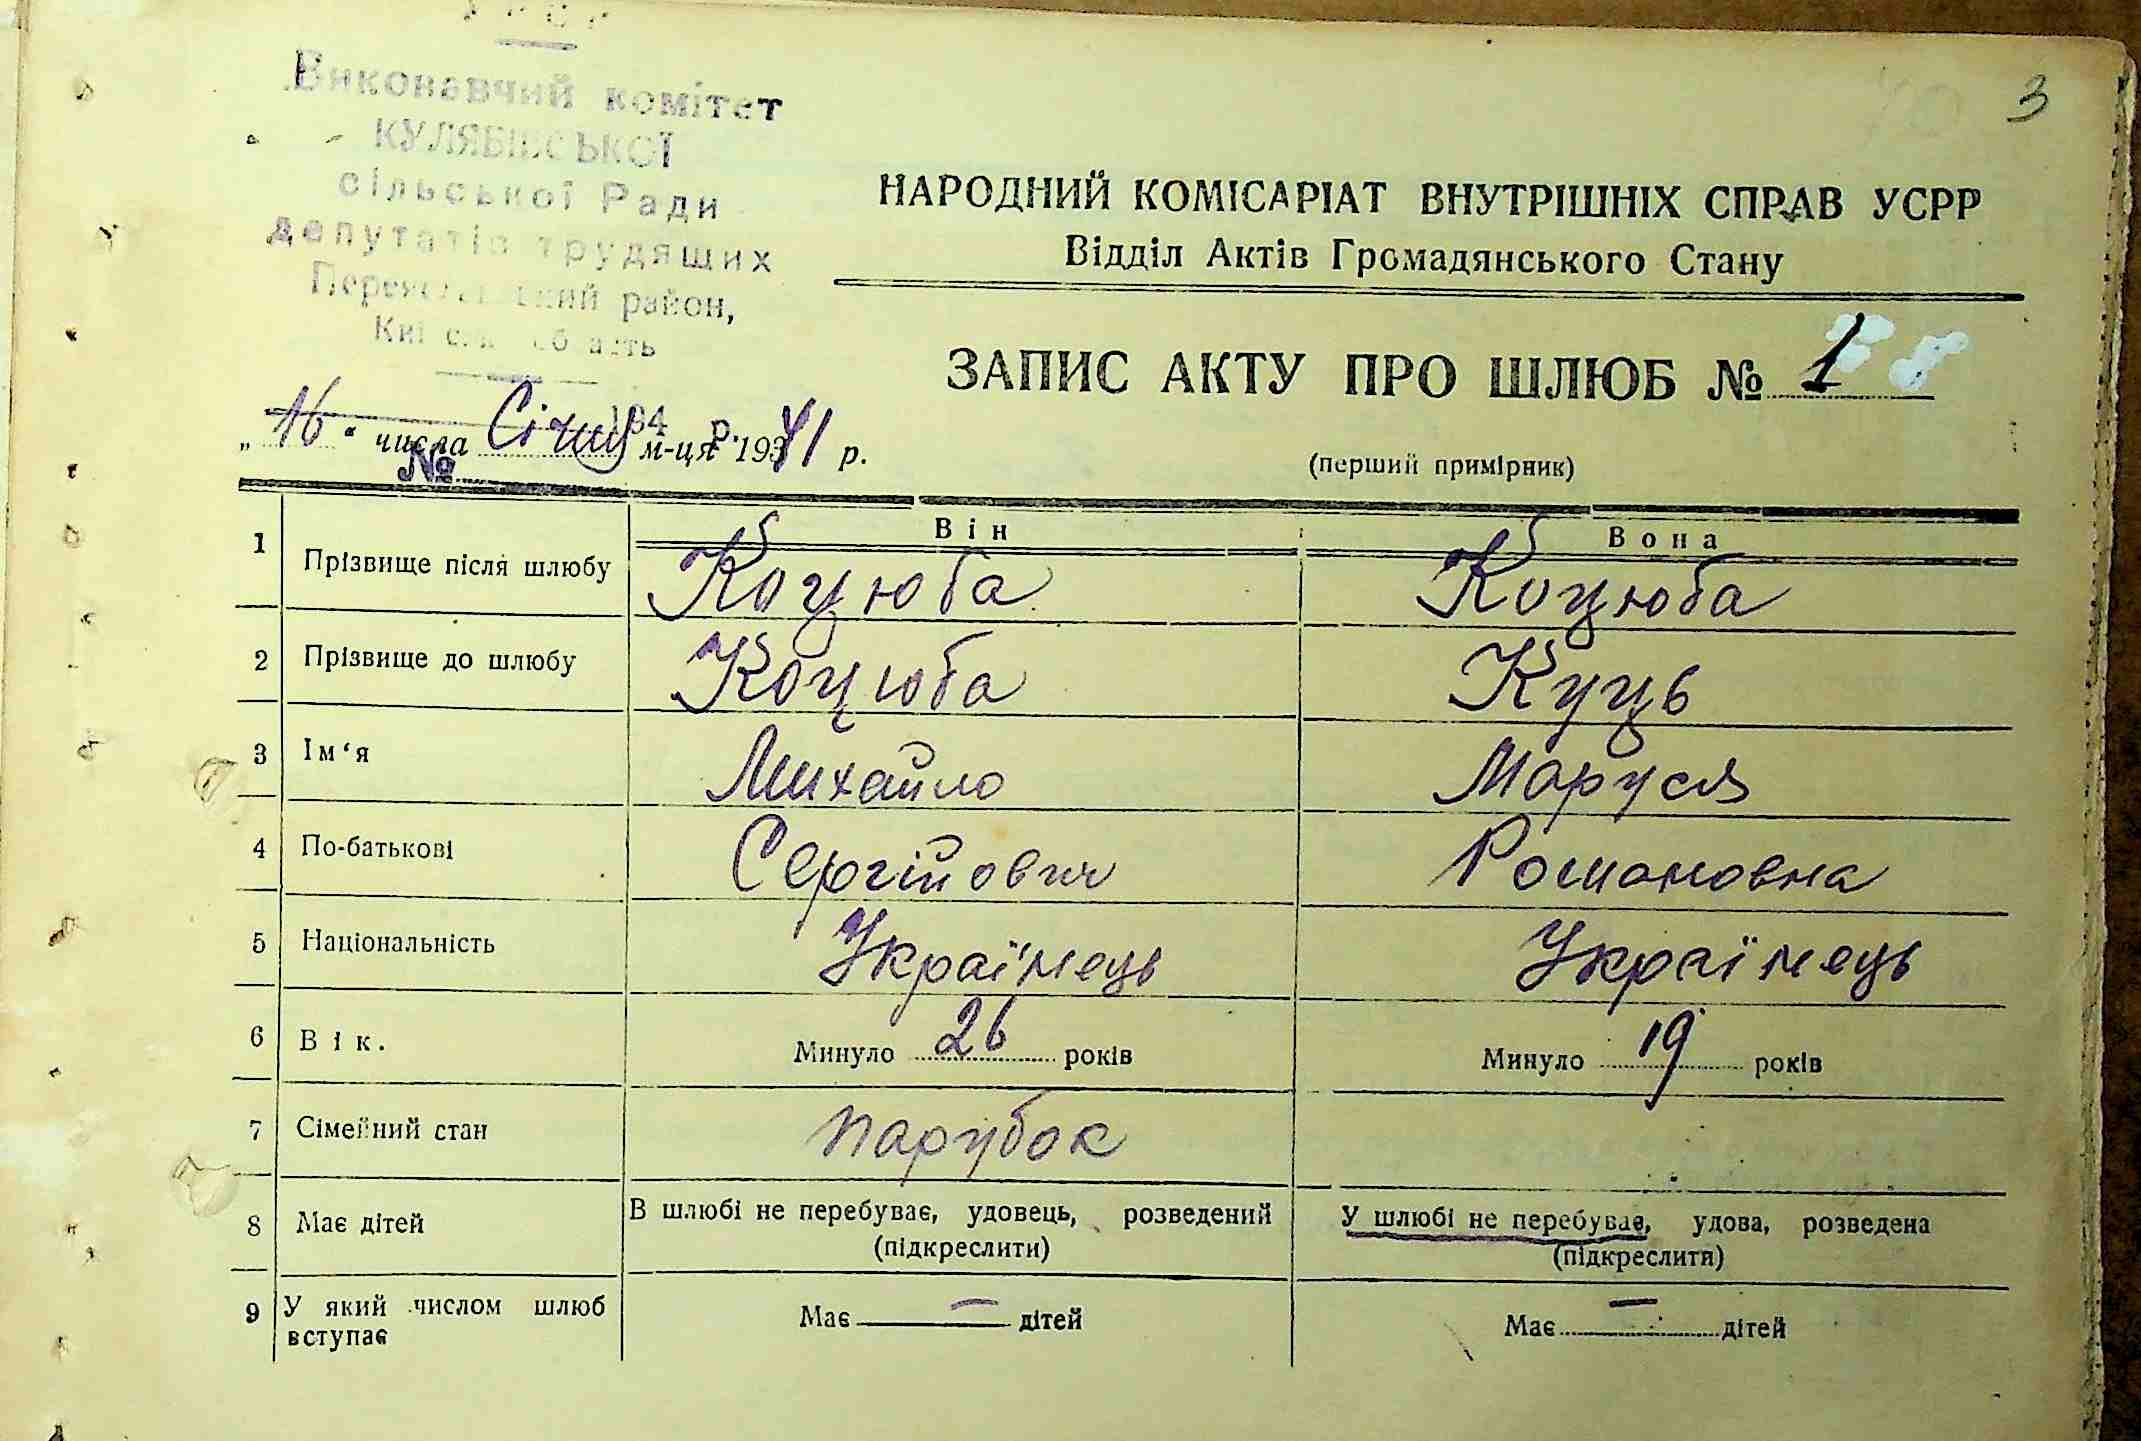 3
Виконавчий комітет
КУЛЯБІВСЬКОЇ
сільської Ради
депутатів трудящих
Переяславський район,
Київська область
194 р.
№
НАРОДНИЙ КОМІСАРІАТ ВНУТРІШНІХ СПРАВ УСРР
Відділ Актів Громадянського Стану
ЗАПИС АКТУ ПРО ШЛЮБ № 1
„16“ числа Січня м-ця 1941 р.
(перший примірник)
Він Вона
1 Прізвище після шлюбу Коцюба Коцюба
2 Прізвище до шлюбу Коцюба Куць
3 Ім‘я Михайло Маруся
4 По-батькові Сергійович Романовна
5 Національність Українець Українець
6 Вік. Минуло 26 років Минуло 19 років
7 Сімейний стан парубок
8 Має дітей В шлюбі не перебуває, удовець, розведений У шлюбі не перебуває, удова, розведена
(підкреслити) (підкреслити)
9 У який числом шлюб Має — дітей Має — дітей
вступає